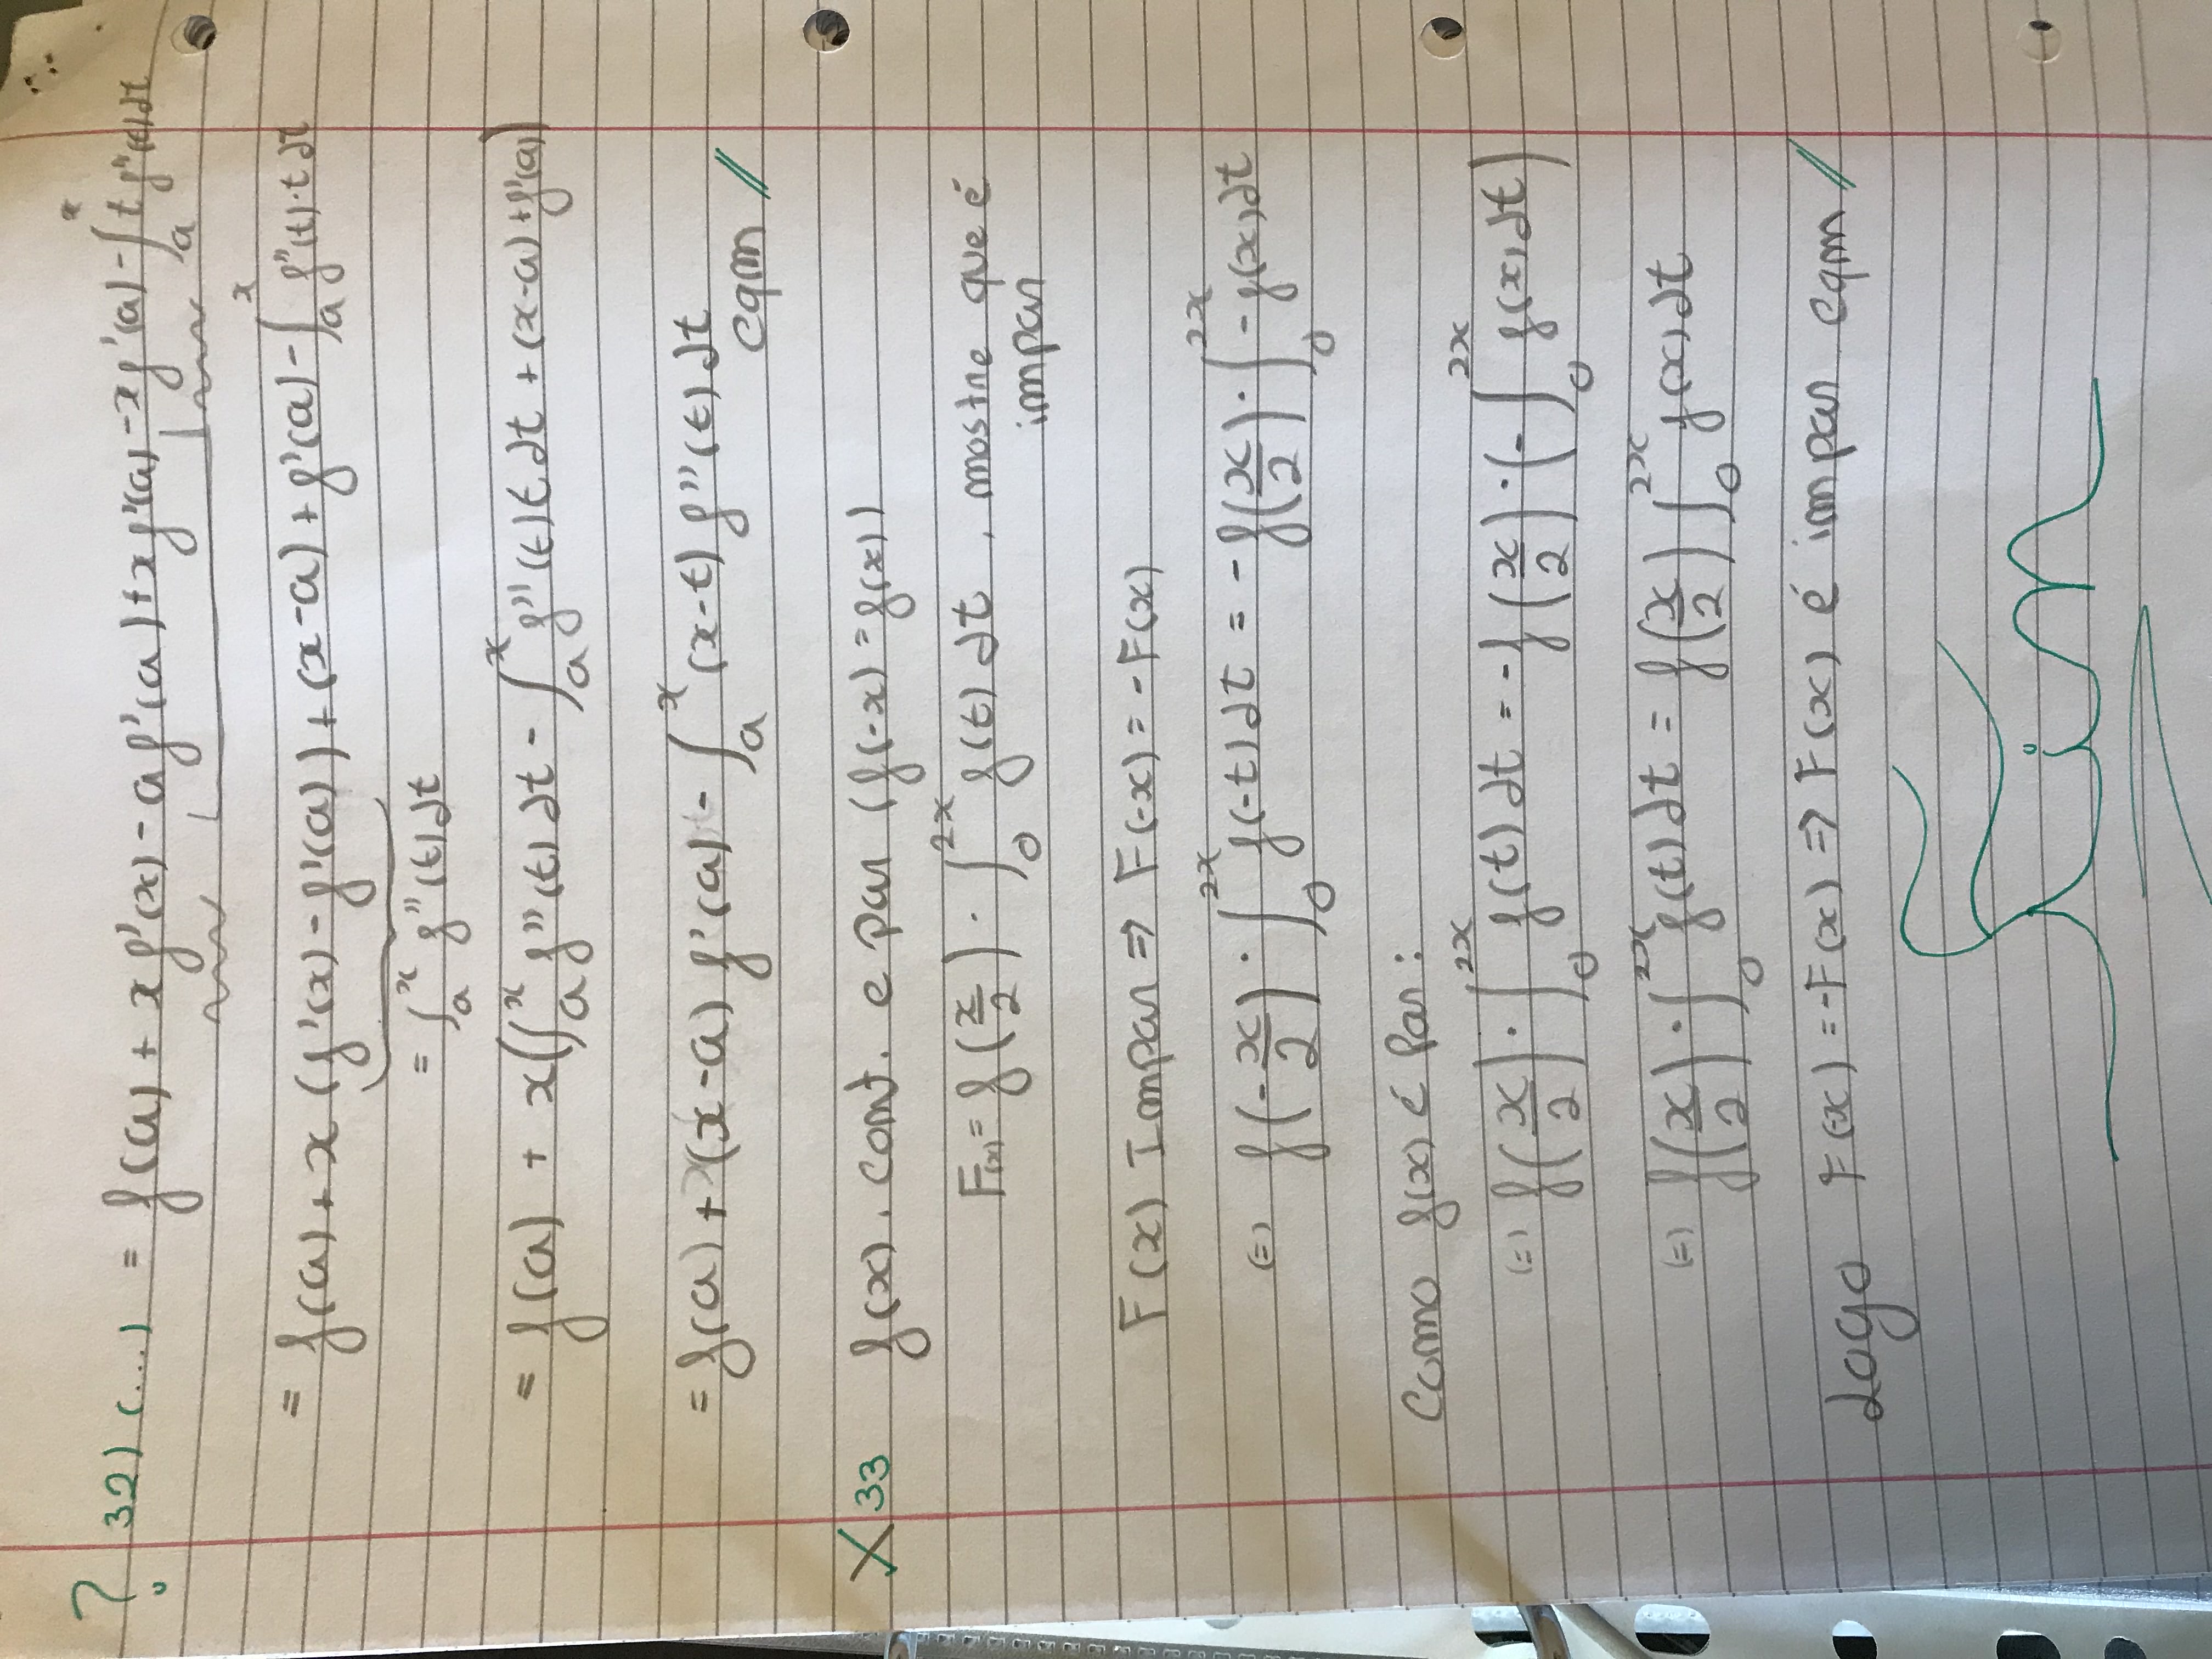 ? 32) (...) = f(a) + x f'(x) - a f'(a) + x f'(a) - x f'(a) - ∫_a^x t f''(t) dt
= f(a) + x (f'(x) - f'(a)) + (x-a) + f'(a) - ∫_a^x f''(t)·t dt
= ∫_a^x f''(t) dt
= f(a) + x(∫_a^x f''(t) dt - ∫_a^x f''(t) t dt + (x-a) + f'(a))
= f(a) + (x-a) f'(a) - ∫_a^x (x-t) f''(t) dt
cqm //
X 33 f(x). cont. e par (f(-x) = f(x))
F(x) = f(x/2) · ∫_0^{2x} f(t) dt, mostre que é
impar
F(x) Impar => F(-x) = -F(x)
(=) f(-x/2) · ∫_0^{2x} f(-t) dt = -f(x/2) · ∫_0^{2x} -f(x) dt
Como f(x) é Par:
(=) f(x/2) · ∫_0^{2x} f(t) dt = -f(x/2) · (-∫_0^{2x} f(x) dt)
(=) f(x/2) · ∫_0^{2x} f(t) dt = f(x/2) ∫_0^{2x} f(x) dt
Logo F(-x) = -F(x) => F(x) é impar cqm //
Fim